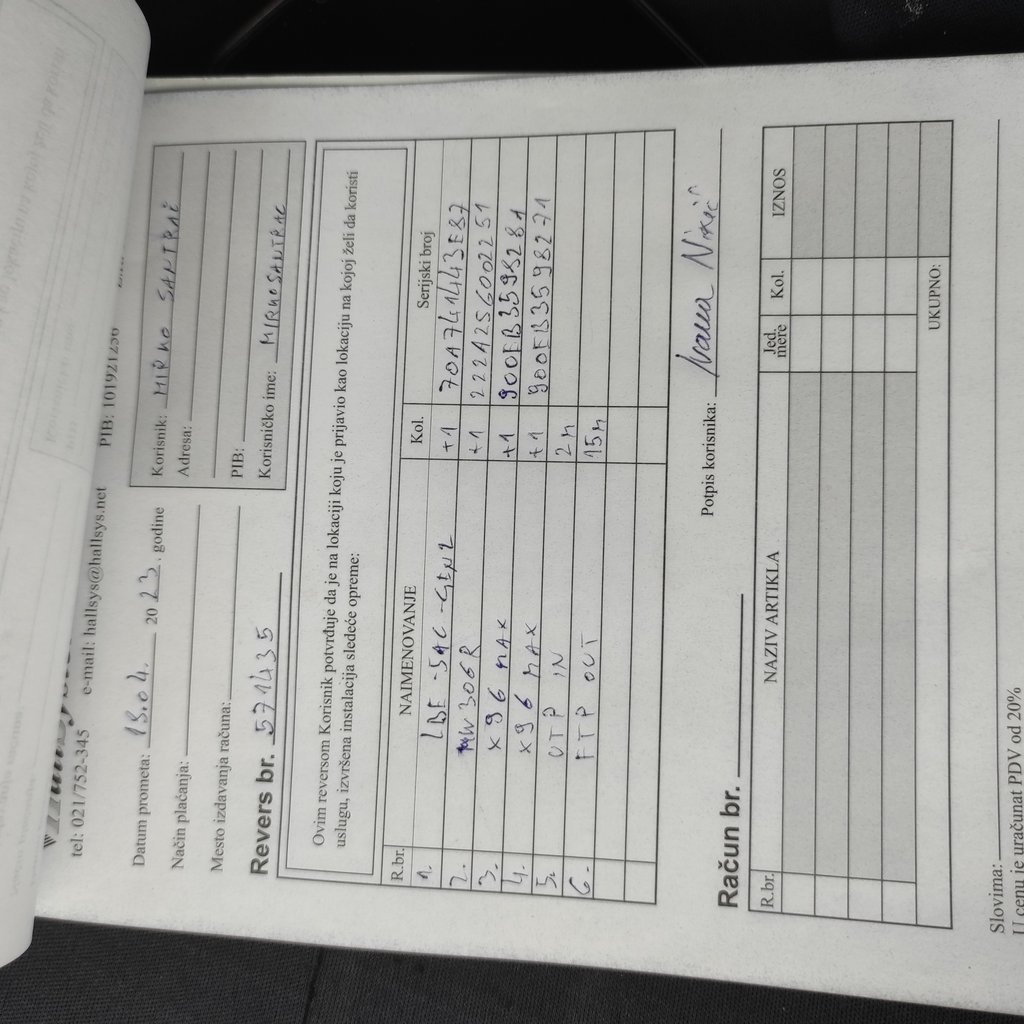 tel: 021/752-345 e-mail: hallsys@hallsys.net PIB: 101921256
Datum prometa: 13.04. 2023. godine
Način plaćanja:
Mesto izdavanja računa:
Revers br. 571435
Korisnik: MIRKO SANTRAČ
Adresa:
PIB:
Korisničko ime: MIRKOSANTRAC
Ovim reversom Korisnik potvrđuje da je na lokaciji koju je prijavio kao lokaciju na kojoj želi da koristi
uslugu, izvršena instalacija sledeće opreme:
R.br. NAIMENOVANJE Kol. Serijski broj
1. LBE-5AC-GEN2 +1 70A741443E87
2. MW306R +1 222A256002251
3. X96 MAX +1 900EB3598281
4. X96 MAX +1 900EB3598271
5. UTP IN 2m
6. FTP OUT 15m
Potpis korisnika: Ivana Nikić
Račun br.
R.br. NAZIV ARTIKLA Jed. mere Kol. IZNOS
UKUPNO:
Slovima:
U cenu je uračunat PDV od 20%